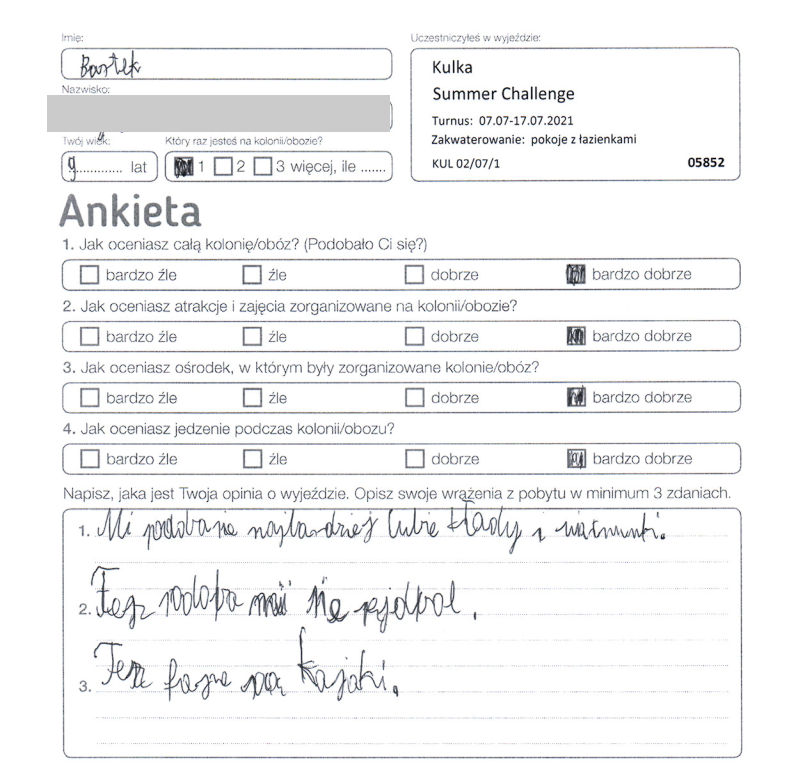 Imię:
Uczestniczyłeś w wyjeździe:
Bartek
Kulka
Summer Challenge
Turnus: 07.07-17.07.2021
Zakwaterowanie: pokoje z łazienkami
KUL 02/07/1 05852
Nazwisko:
Twój wiek:
Który raz jesteś na kolonii/obozie?
9............. lat
1 2 3 więcej, ile .......
Ankieta
1. Jak oceniasz całą kolonię/obóz? (Podobało Ci się?)
bardzo źle źle dobrze bardzo dobrze
2. Jak oceniasz atrakcje i zajęcia zorganizowane na kolonii/obozie?
bardzo źle źle dobrze bardzo dobrze
3. Jak oceniasz ośrodek, w którym były zorganizowane kolonie/obóz?
bardzo źle źle dobrze bardzo dobrze
4. Jak oceniasz jedzenie podczas kolonii/obozu?
bardzo źle źle dobrze bardzo dobrze
Napisz, jaka jest Twoja opinia o wyjeździe. Opisz swoje wrażenia z pobytu w minimum 3 zdaniach.
1. Mi podoba najbardziej lubie i
2. podoba się
3. kajaki.